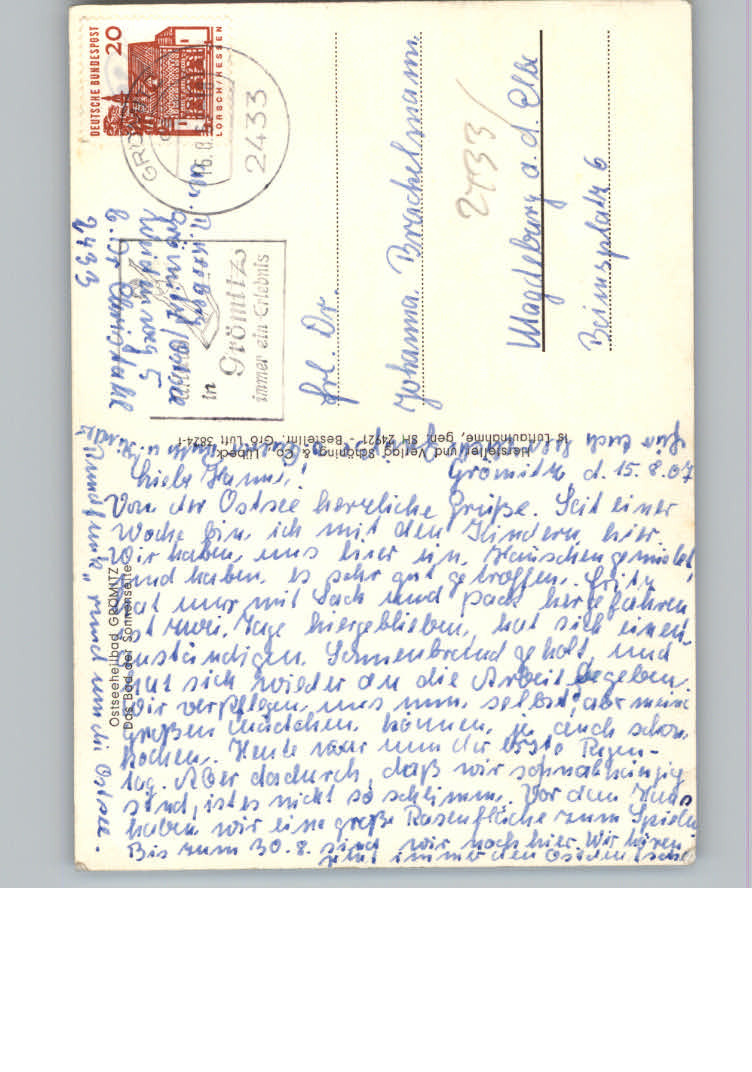 DEUTSCHE BUNDESPOST
20
LORSCH/HESSEN
2433
in
Grömitz
immer ein Erlebnis
Grömitz/Ostsee
weg 5
b. Dr.
2433
Frl. Dr.
Johanna Brachelmann
2433
Magdeburg a. d. Elbe
Beimsplatz 6
Hersteller und Verlag Schöning & Co., Lübeck
Luftaufnahme, gen. SH 24921 Bestellnr. Grö Luft 5824-f
Ostseeheilbad GRÖMITZ
Das Bad der Sonnenseite
Grömitz, d. 15.8.67
Liebe Hanni!
Von der Ostsee herzliche Grüße. Seit einer
Woche bin ich mit den Kindern hier.
Wir haben uns hier ein Häuschen gemietet
und haben es sehr gut getroffen. Fritz
hat uns mit Sack und Pack hergefahren
ist zwei Tage hiergeblieben, hat sich einen
anständigen Sonnenbrand geholt und
hat sich wieder an die Arbeit begeben.
Wir verpflegen uns nun selbst, aber meine
großen Mädchen können ja auch schon
kochen. Heute war nun der erste Regen-
tag. Aber dadurch, daß wir so unabhängig
sind, ist es nicht so schlimm. Vor dem Haus
haben wir eine große Rasenfläche zum Spielen
Bis zum 30.8. sind wir noch hier. Wir hören
jetzt immer den Ostdeutsche
Rundfunk "rund um die Ostsee."
für Euch